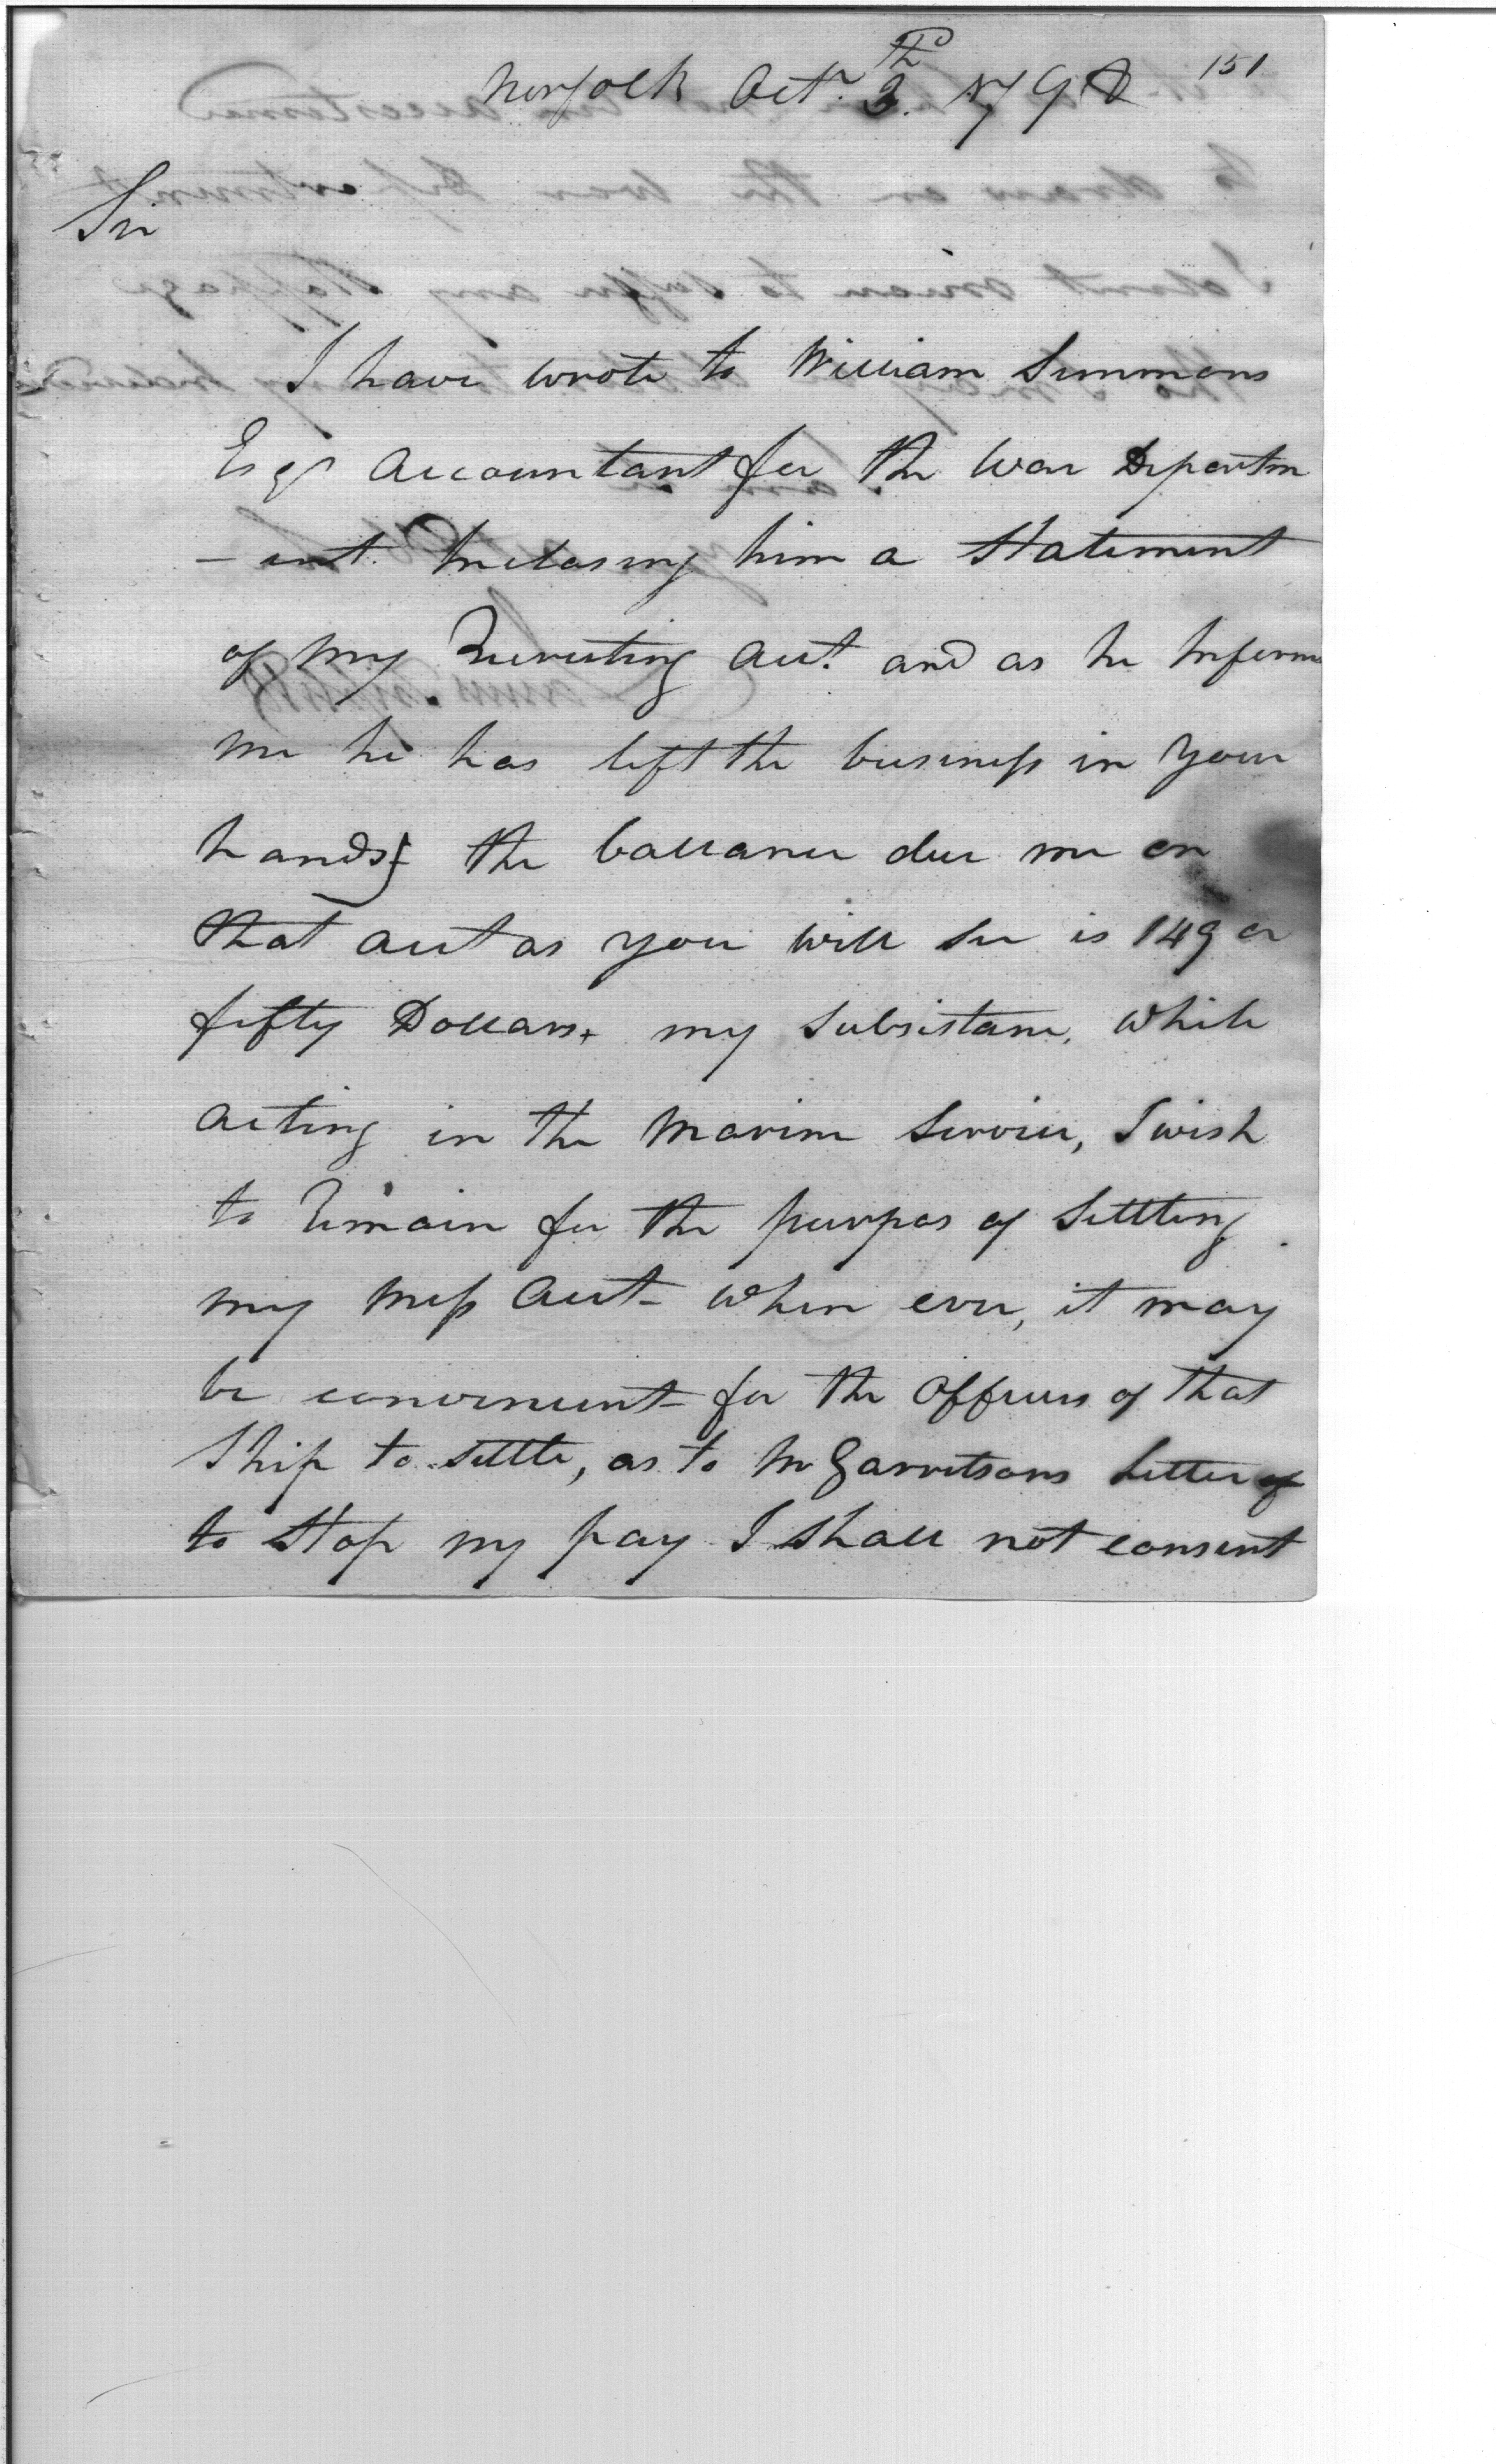 Norfolk Octr. 3 1798 151
Sir
I have wrote to William Simmons
Esqr accountant for the War Departm
- ent. Inclosing him a Statement
of my Recruiting acct. and as he Informs
me he has left the business in your
hands the ballance due me on
that acct as you will see is 149 or
fifty Dollars. my Subsistance, while
acting in the Marine Service, I wish
to Remain for the purpos of Settling
my mess acct - when ever, it may
be convenient for the officers of that
Ship to settle, as to Mr Garretsons Letter of
to Stop my pay I shall not consent